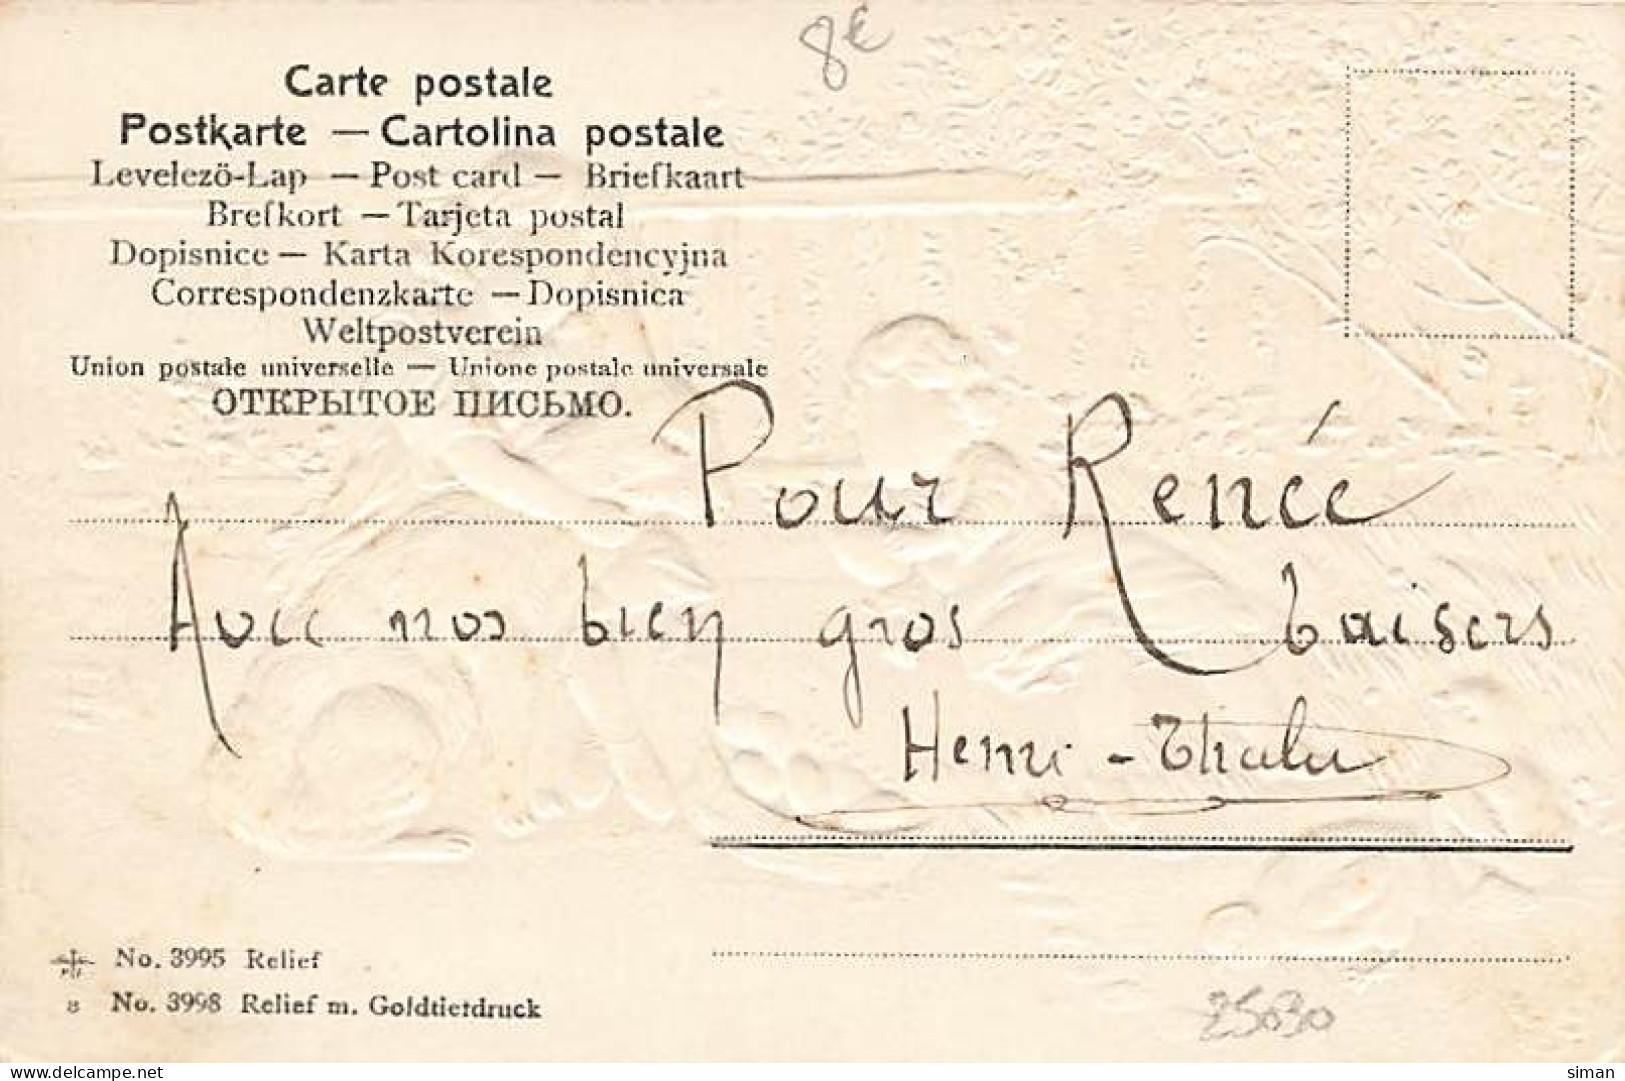 8€
Carte postale
Postkarte — Cartolina postale
Levelezö-Lap — Post card — Briefkaart
Brefkort — Tarjeta postal
Dopisnice — Karta Korespondencyjna
Correspondenzkarte — Dopisnica
Weltpostverein
Union postale universelle — Unione postale universale
ОТКРЫТОЕ ПИСЬМО.
Pour Renée
Avec nos bien gros baisers
Henri -
No. 3995 Relief
8 No. 3998 Relief m. Goldtiefdruck
25030
delcampe.net
siman